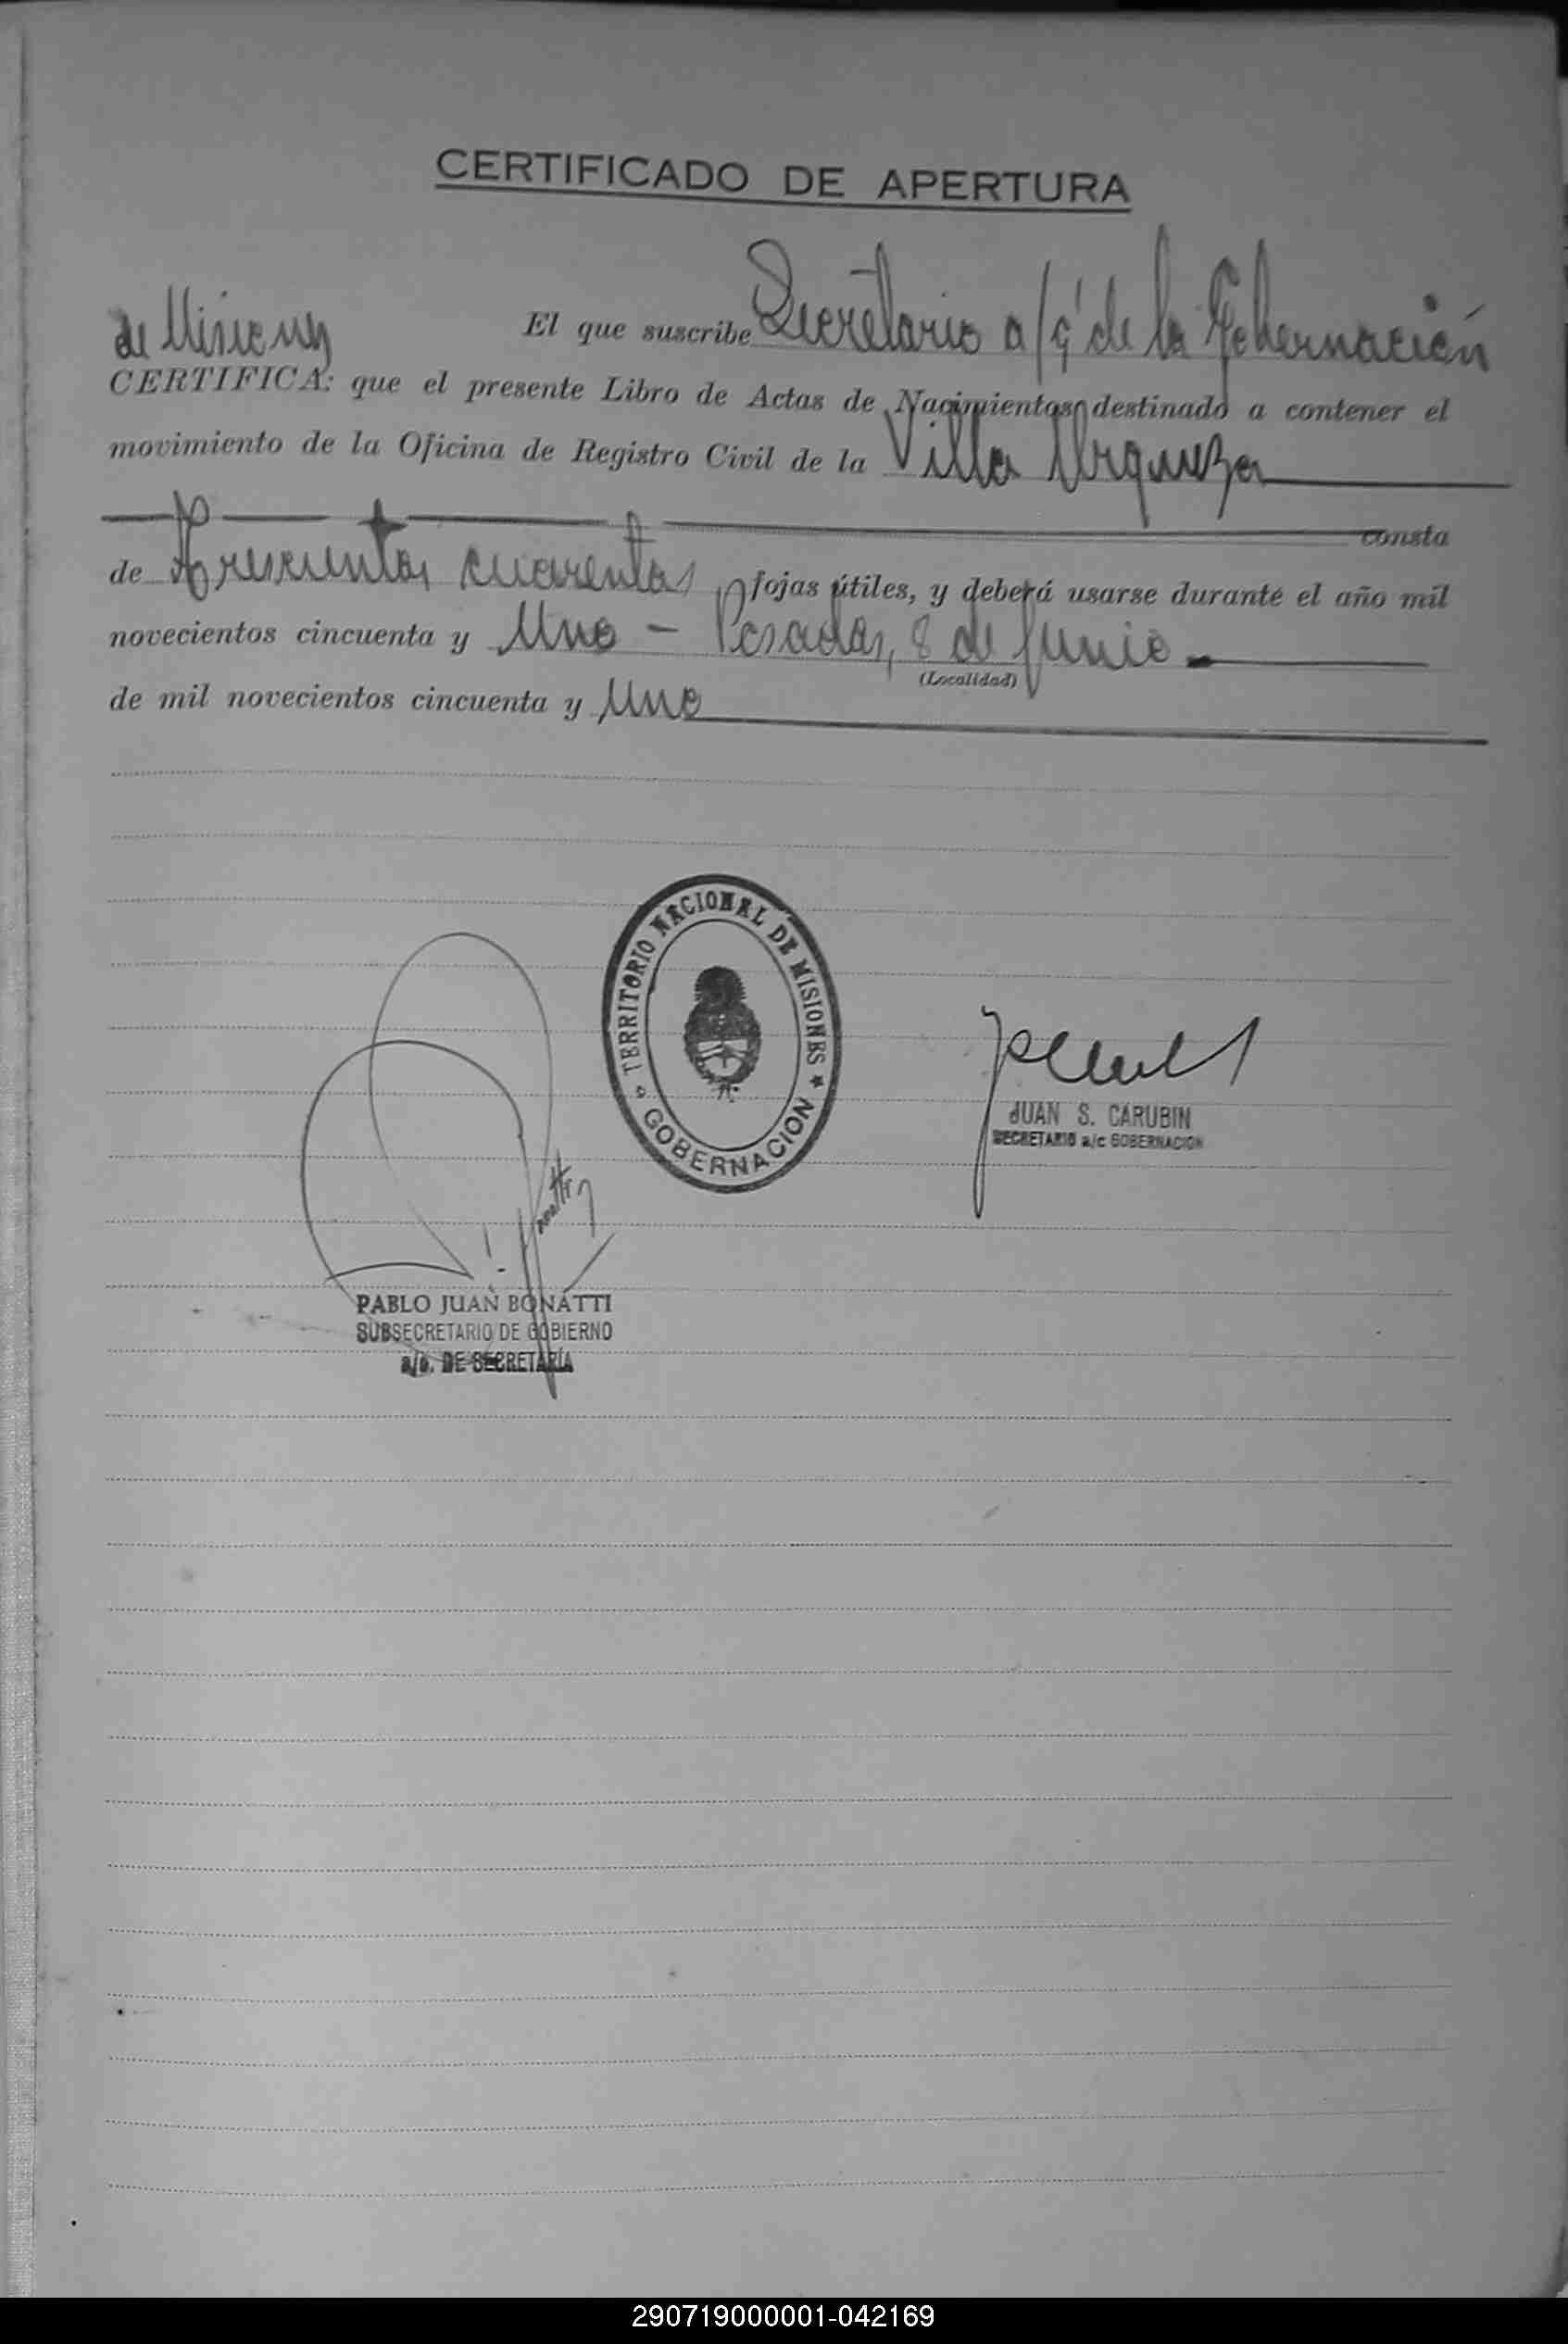 CERTIFICADO DE APERTURA
El que suscribe Secretario a/c de la Gobernación
de Misiones
CERTIFICA: que el presente Libro de Actas de Nacimientos, destinado a contener el
movimiento de la Oficina de Registro Civil de la Villa Urquiza
consta
de Trescientas cuarenta fojas útiles, y deberá usarse durante el año mil
novecientos cincuenta y Uno - Posadas, 8 de Junio
(Localidad)
de mil novecientos cincuenta y Uno
TERRITORIO NACIONAL DE MISIONES
GOBERNACION
JUAN S. CARUBIN
SECRETARIO a/c GOBERNACION
PABLO JUAN BONATTI
SUBSECRETARIO DE GOBIERNO
a/c. DE SECRETARÍA
290719000001-042169